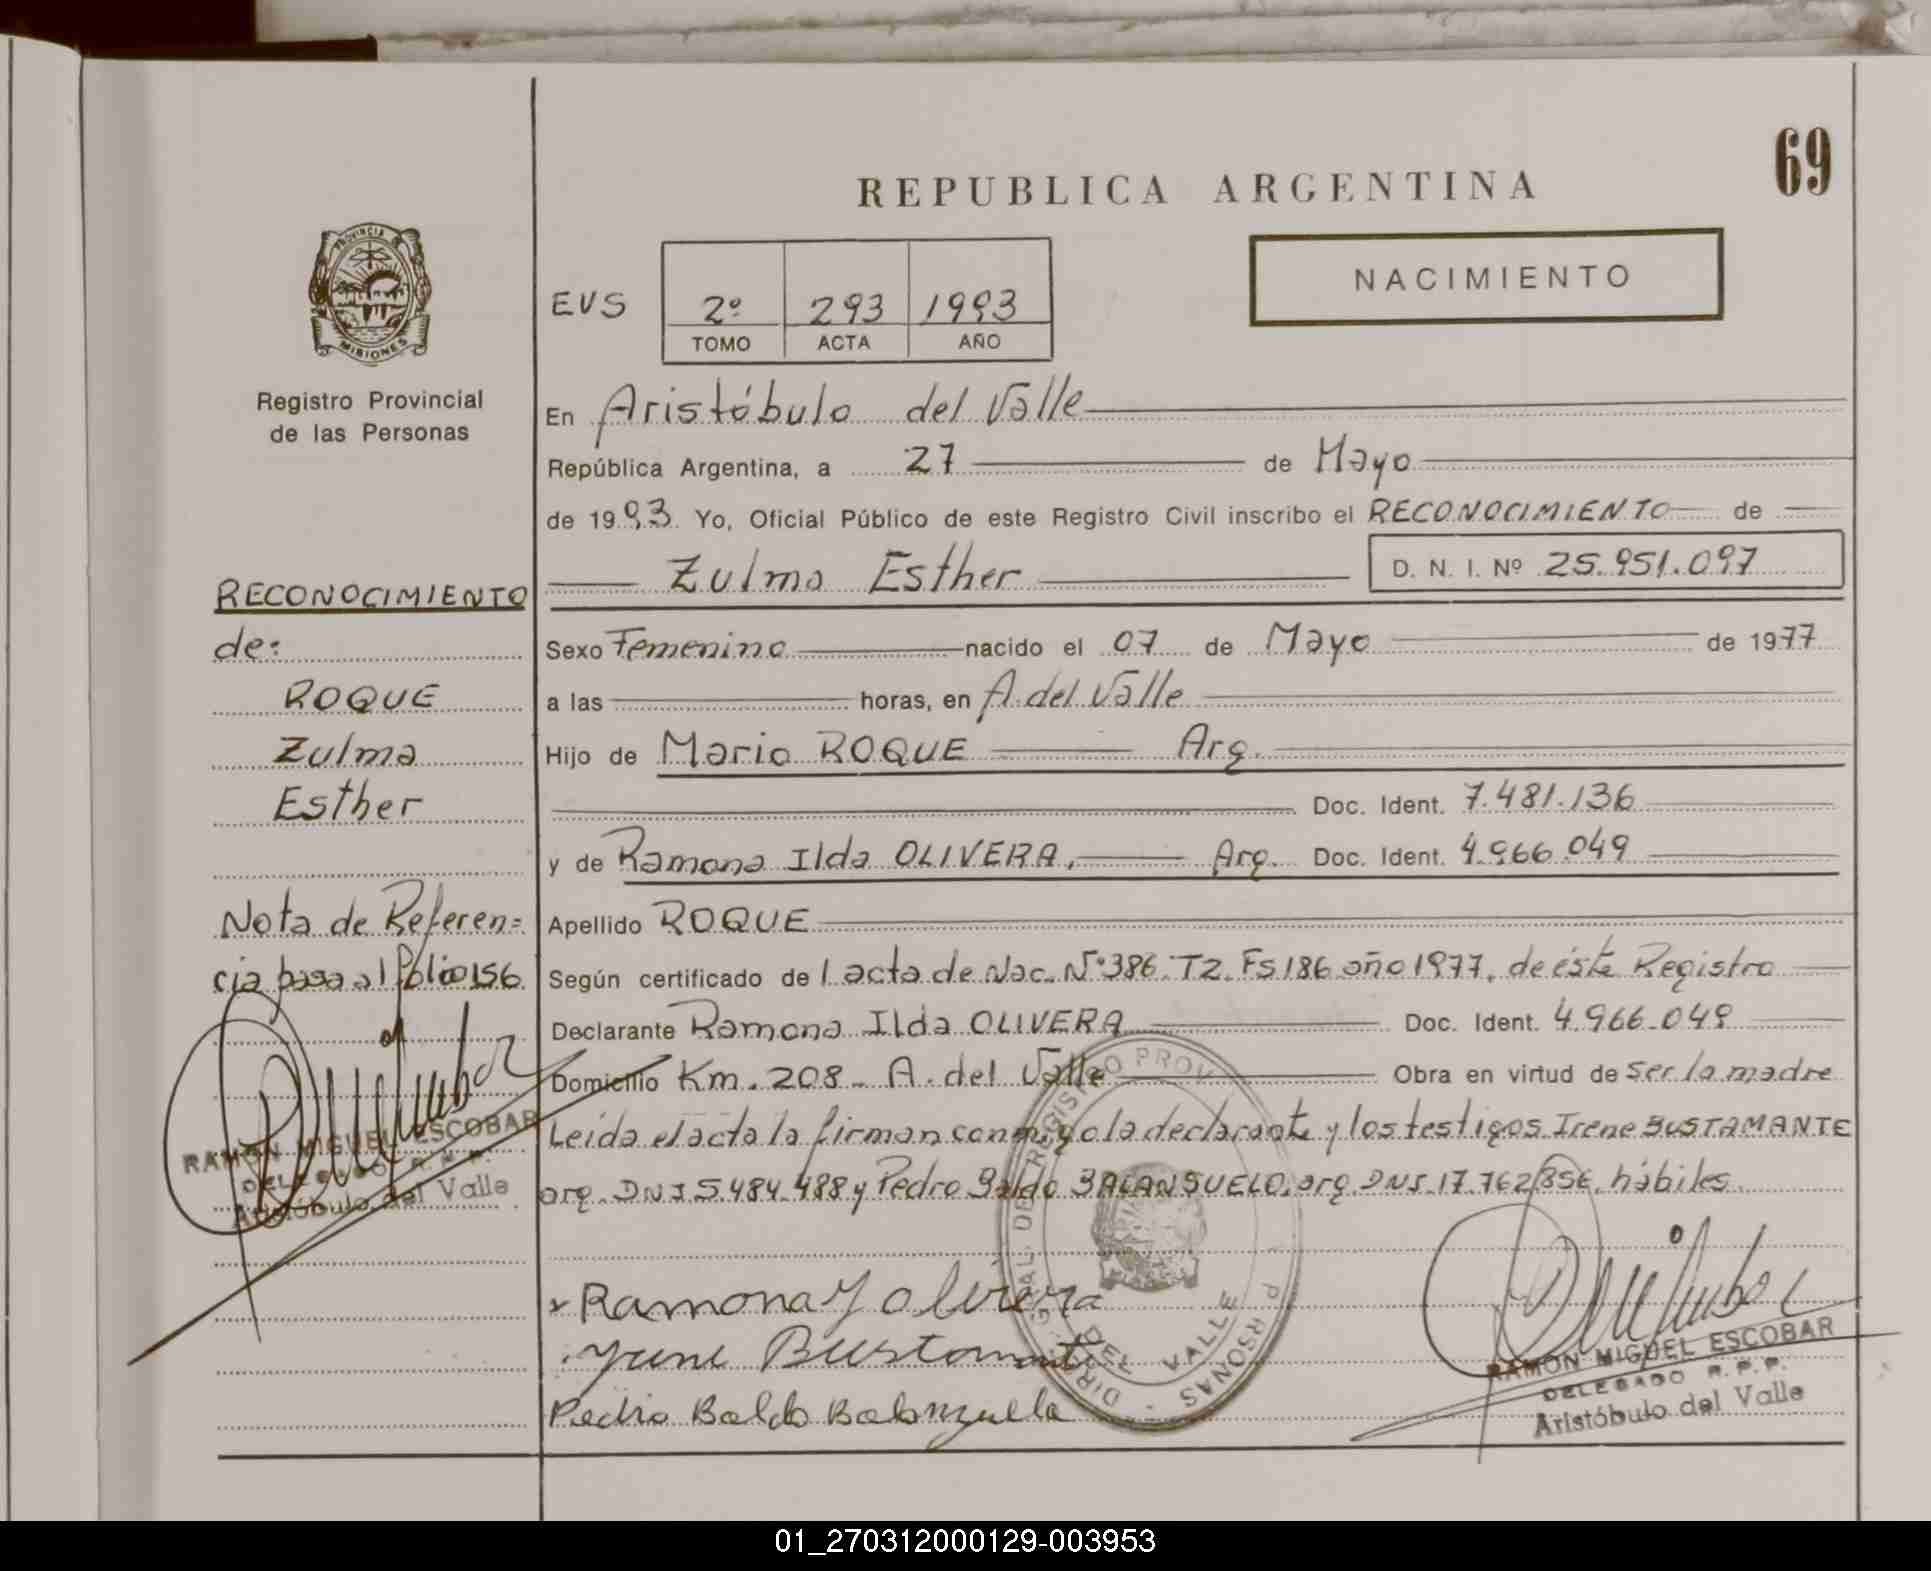 69
REPUBLICA ARGENTINA
NACIMIENTO
PROVINCIA DE
MISIONES
Registro Provincial
de las Personas
EVS
2º 293 1993
TOMO ACTA AÑO
En Aristóbulo del Valle
República Argentina, a 27 de Mayo
de 1993. Yo, Oficial Público de este Registro Civil inscribo el RECONOCIMIENTO de
Zulma Esther D. N. I. Nº 25.951.097
Sexo Femenino nacido el 07 de Mayo de 1977
a las horas, en A. del Valle
Hijo de Mario ROQUE Arg.
Doc. Ident. 7.481.136
y de Ramona Ilda OLIVERA, Arg. Doc. Ident. 4.966.049
Apellido ROQUE
Según certificado de l acta de Nac. Nº 386. T2. Fs 186 año 1977, de éste Registro
Declarante Ramona Ilda OLIVERA Doc. Ident. 4.966.049
Domicilio Km. 208 - A. del Valle Obra en virtud de Ser la madre
Leida el acta la firman conmigo la declarante y los testigos Irene BUSTAMANTE
arg. DNI 5.484.488 y Pedro Baldo BALANSUELO, arg. DNI. 17.762.856, hábiles.
RECONOCIMIENTO
de:
ROQUE
Zulma
Esther
Nota de Referen=
cia pasa al folio 156
RAMON MIGUEL ESCOBAR
DELEGADO R. P. P.
Aristóbulo del Valle
x Ramona Y olivera
Yrene Bustamante
Pedro Baldo Balanzuela
DIR. GRAL. DEL REGISTRO PROV.
PERSONAS
DEL VALLE
RAMON MIGUEL ESCOBAR
DELEGADO R. P. P.
Aristóbulo del Valle
01_270312000129-003953